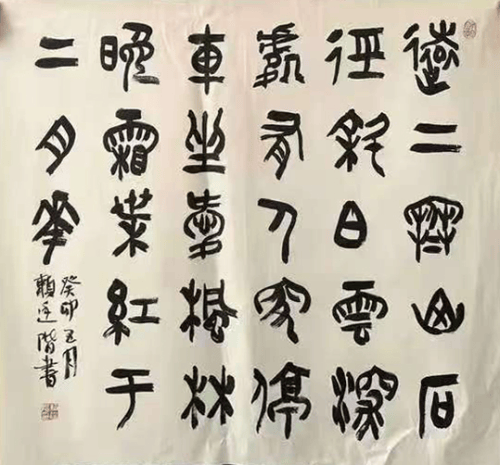 遠上寒山石
徑斜白雲深
處有人家停
車坐愛楓林
晚霜葉紅于
二月花
癸卯五月
賴廷階書